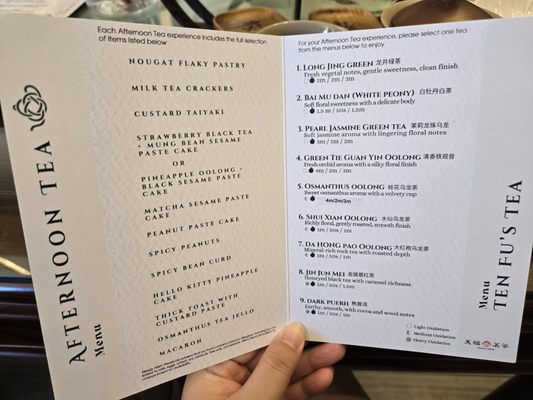 AFTERNOON TEA
Menu
Each Afternoon Tea experience includes the full selection
of items listed below
NOUGAT FLAKY PASTRY
MILK TEA CRACKERS
CUSTARD TAIYAKI
STRAWBERRY BLACK TEA
+ MUNG BEAN SESAME
PASTE CAKE
OR
PINEAPPLE OOLONG +
BLACK SESAME PASTE
CAKE
MATCHA SESAME PASTE
CAKE
PEANUT PASTE CAKE
SPICY PEANUTS
SPICY BEAN CURD
HELLO KITTY PINEAPPLE
CAKE
THICK TOAST WITH
CUSTARD PASTE
OSMANTHUS TEA JELLO
MACARON
For your Afternoon Tea experience, please select one tea
from the menus below to enjoy
1. LONG JING GREEN 龙井绿茶
Fresh vegetal notes, gentle sweetness, clean finish
2m / 2m / 3m
2. BAI MU DAN (WHITE PEONY) 白牡丹白茶
Soft floral sweetness with a delicate body
1.5 m / 50s / 1.5m
3. PEARL JASMINE GREEN TEA 茉莉龙珠乌龙
Soft jasmine aroma with lingering floral notes
3m / 1m / 2m
4. GREEN TIE GUAN YIN OOLONG 清香铁观音
Fresh orchid aroma with a silky floral finish
4m / 2m / 3m
5. OSMANTHUS OOLONG 桂花乌龙茶
Sweet osmanthus aroma with a velvety cup
4m/2m/3m
6. SHUI XIAN OOLONG 水仙乌龙茶
Richly floral, gently roasted, smooth finish
1m / 50s / 1m
7. DA HONG PAO OOLONG 大红袍乌龙茶
Mineral-rich rock tea with roasted depth
1m / 50s / 1m
8. JIN JUN MEI 金骏眉红茶
Honeyed black tea with caramel richness
1m / 50s / 1.5m
9. DARK PUERH 熟普洱
Earthy, smooth, with cocoa and wood notes
1m / 50s / 1m
Light Oxidation
Medium Oxidation
Heavy Oxidation
天福 茗茶
Menu
TEN FU'S TEA